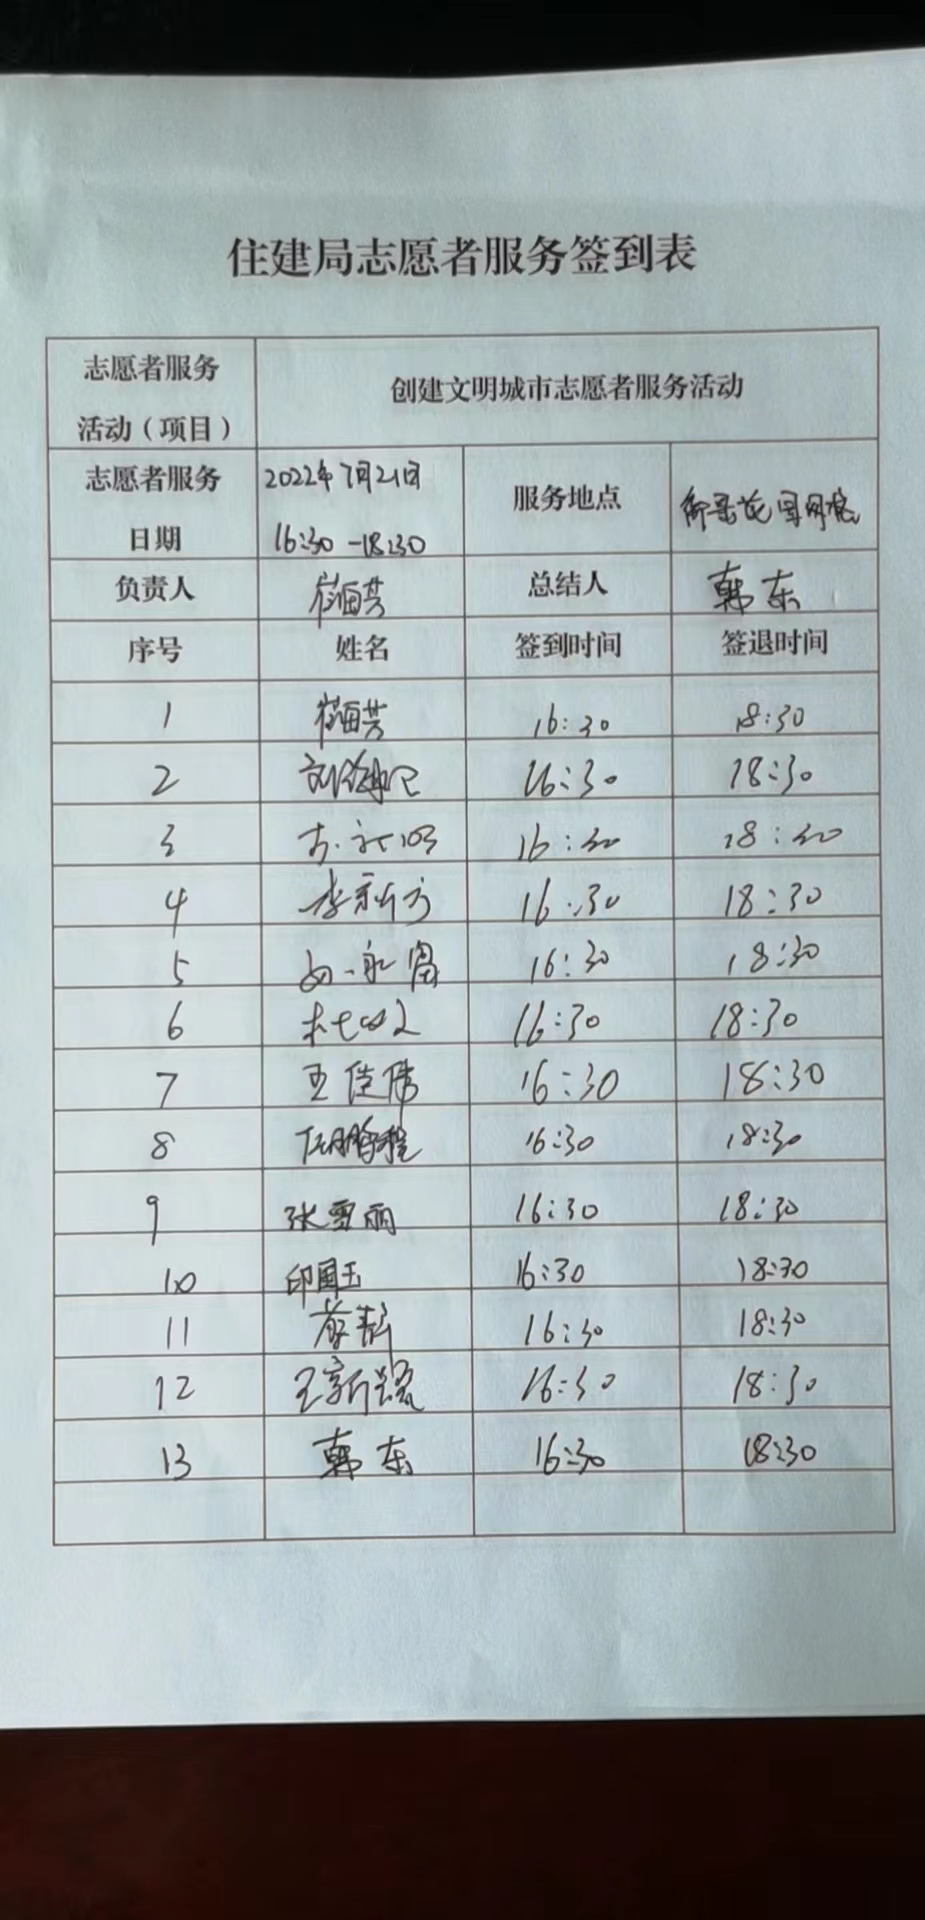 住建局志愿者服务签到表
志愿者服务
活动（项目）
创建文明城市志愿者服务活动
志愿者服务
日期
2022年7月21日
16:30-18:30
服务地点
负责人
总结人
韩东
序号 姓名 签到时间 签退时间
1 16:30 18:30
2 16:30 18:30
3 16:30 18:30
4 李新方 16:30 18:30
5 16:30 18:30
6 16:30 18:30
7 王佳伟 16:30 18:30
8 任鹏程 16:30 18:30
9 张雪丽 16:30 18:30
10 印国玉 16:30 18:30
11 16:30 18:30
12 16:30 18:30
13 韩东 16:30 18:30